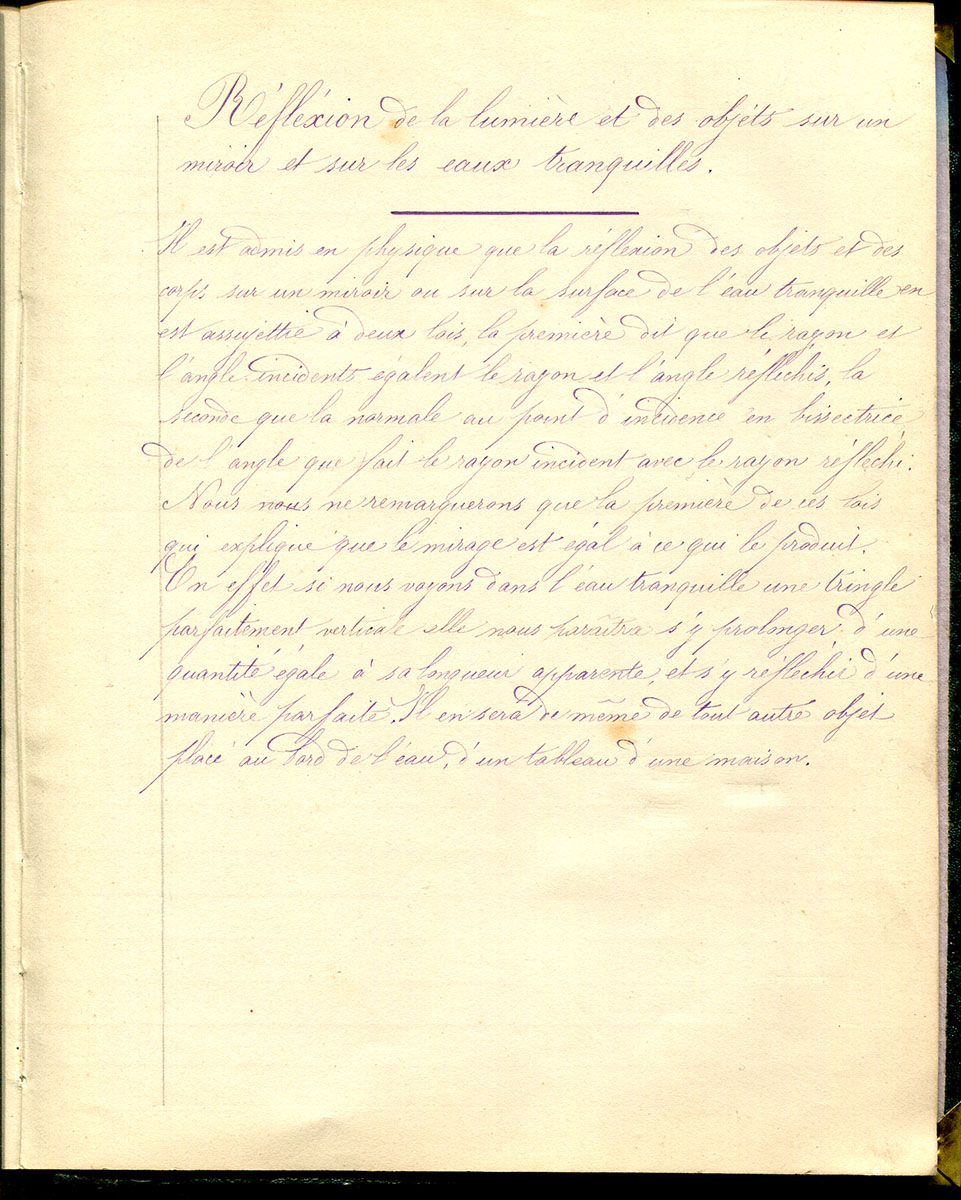 Réfléxion de la lumière et des objéts sur un
miroir et sur les eaux tranquilles.
Il est admis en physique que la réflexion des objets et des
corps sur un miroir ou sur la surface de l'eau tranquille en
est assujettie à deux lois, la première dit que le rayon et
l'angle incidents égalent le rayon et l'angle réfléchis, la
seconde que la normale au point d'incidence en bissectrice
de l'angle que fait le rayon incident avec le rayon réfléchi.
Nous nous ne remarquerons que la première de ces lois
qui explique que le mirage est égal à ce qui le produit.
En effet si nous voyons dans l'eau tranquille une tringle
parfaitement verticale elle nous paraîtra s'y prolonger d'une
quantité égale à sa longueur apparente, et s'y réfléchir d'une
manière parfaite. Il en sera de même de tout autre objet
placé au bord de l'eau, d'un tableau d'une maison.